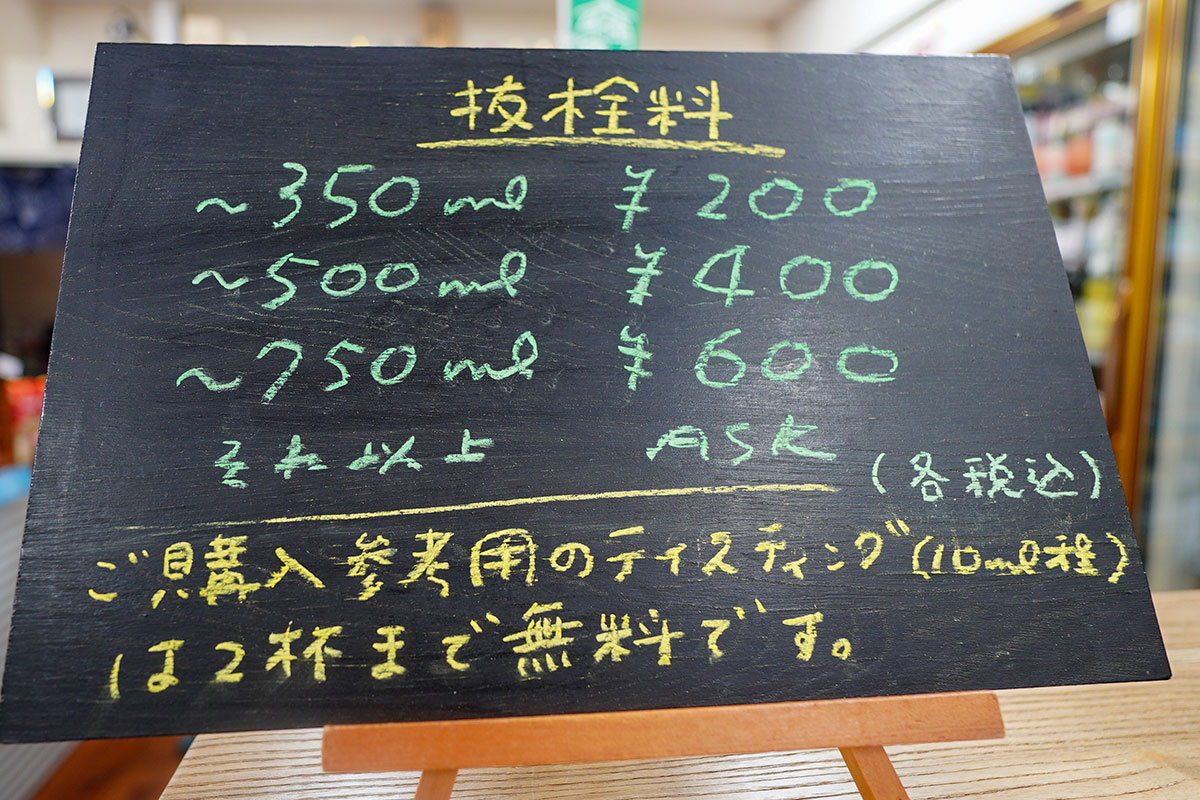 抜栓料
~350ml ¥200
~500ml ¥400
~750ml ¥600
それ以上 ASK
(各税込)
ご購入参考用のテイスティング(10ml程)
は2杯まで無料です。